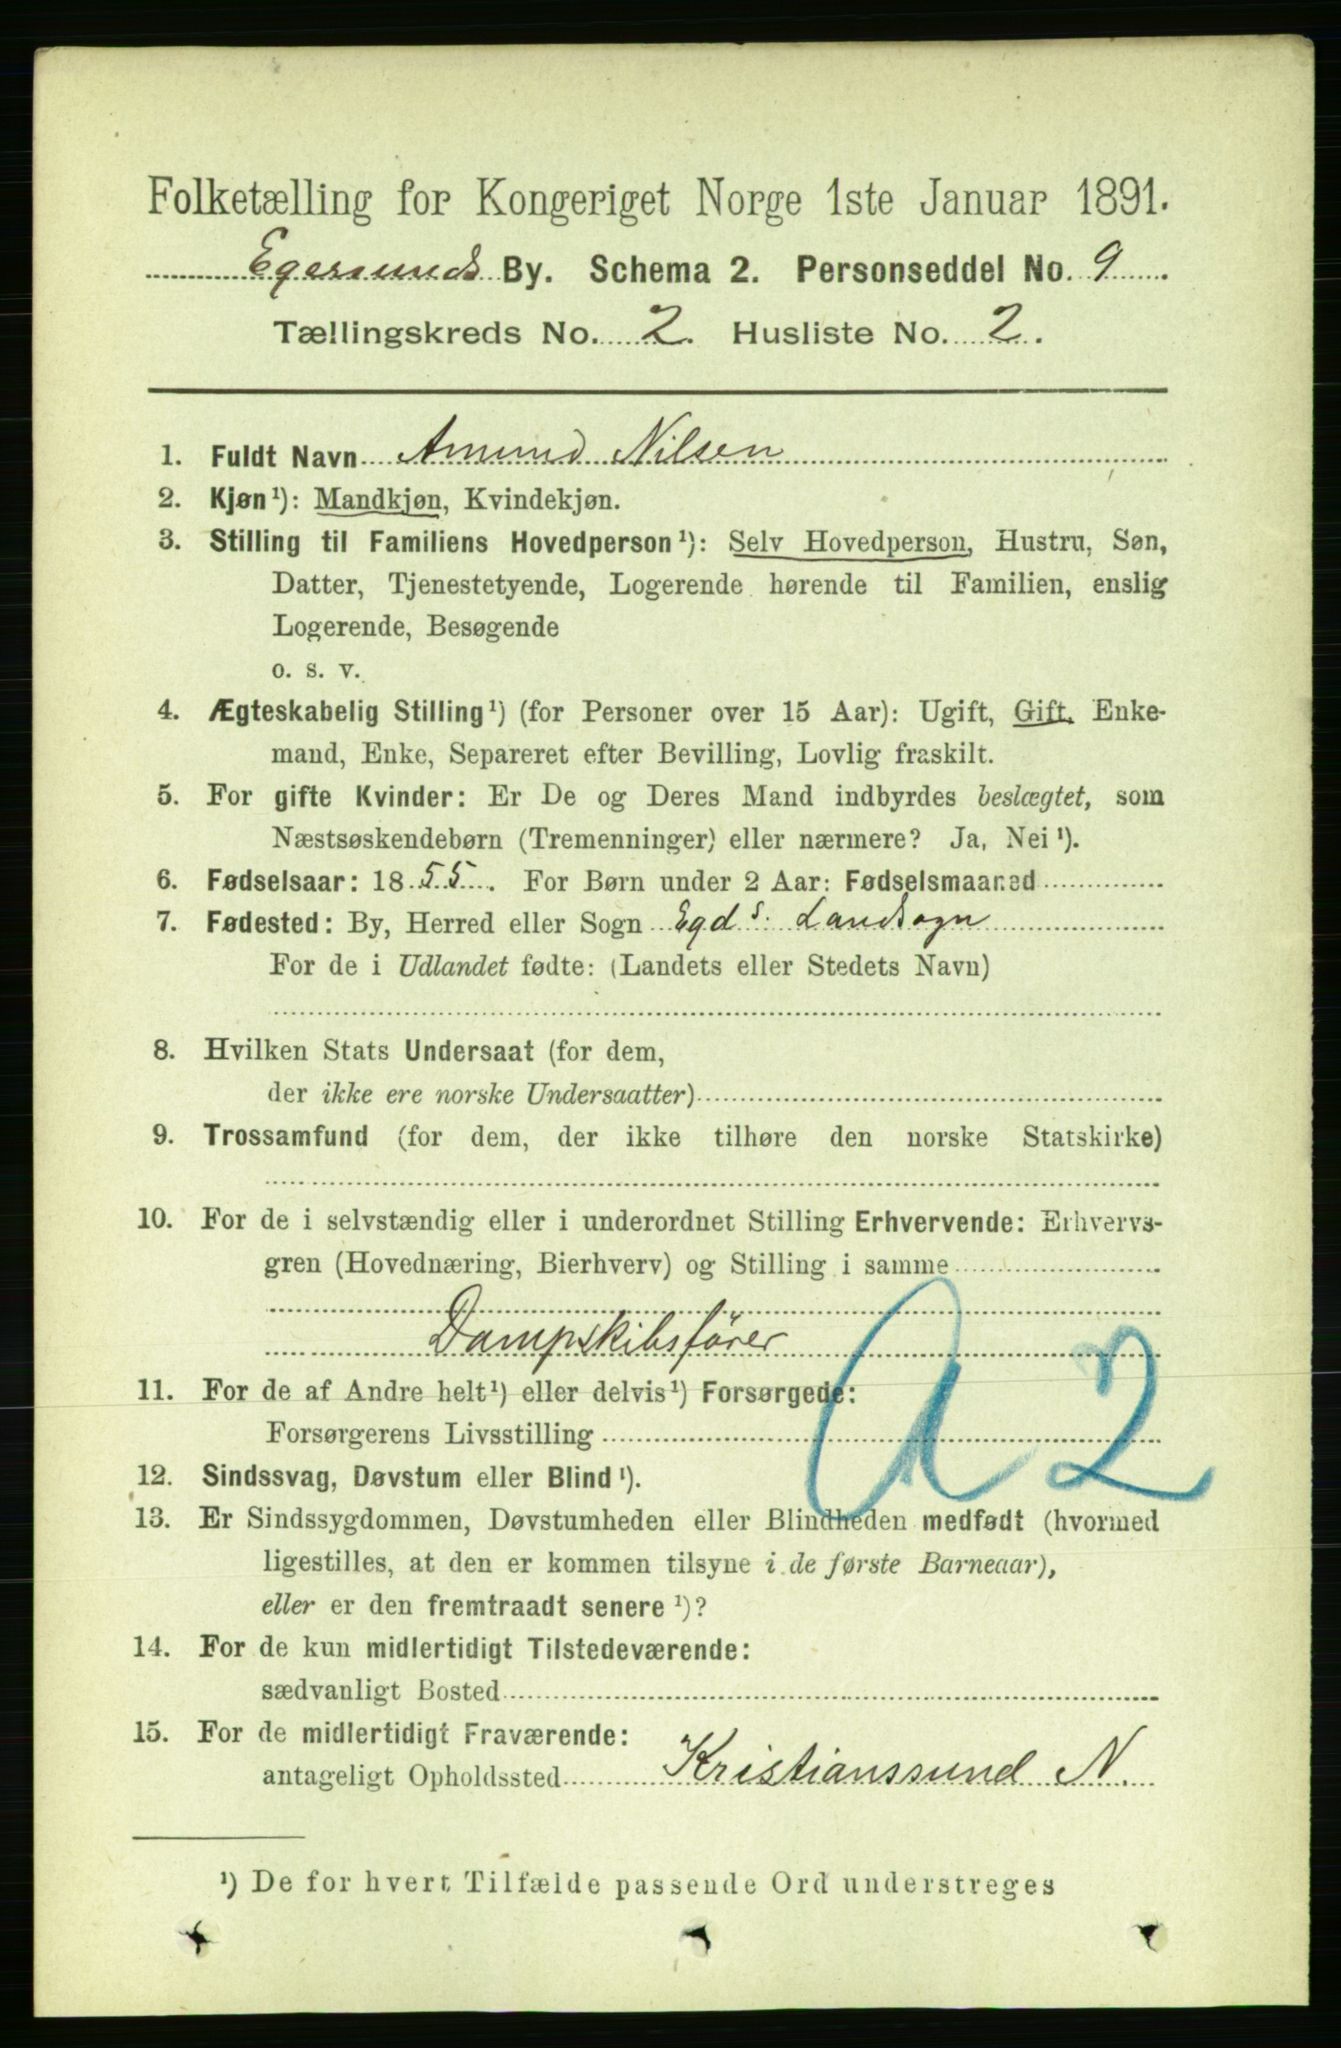 Folketælling for Kongeriget Norge 1ste Januar 1891.
Egersunds By. Schema 2. Personseddel No. 9
Tællingskreds No. 2. Husliste No. 2.
1. Fuldt Navn Amund Nilsen
2. Kjøn¹): Mandkjøn, Kvindekjøn.
3. Stilling til Familiens Hovedperson¹): Selv Hovedperson, Hustru, Søn,
Datter, Tjenestetyende, Logerende hørende til Familien, enslig
Logerende, Besøgende
o. s. v.
4. Ægteskabelig Stilling¹) (for Personer over 15 Aar): Ugift, Gift, Enke-
mand, Enke, Separeret efter Bevilling, Lovlig fraskilt.
5. For gifte Kvinder: Er De og Deres Mand indbyrdes beslægtet, som
Næstsøskendebørn (Tremenninger) eller nærmere? Ja, Nei¹).
6. Fødselsaar: 1855. For Børn under 2 Aar: Fødselsmaaned
7. Fødested: By, Herred eller Sogn Egds. Landsogn
For de i Udlandet fødte: (Landets eller Stedets Navn)
8. Hvilken Stats Undersaat (for dem,
der ikke ere norske Undersaatter)
9. Trossamfund (for dem, der ikke tilhøre den norske Statskirke)
10. For de i selvstændig eller i underordnet Stilling Erhvervende: Erhvervs-
gren (Hovednæring, Bierhverv) og Stilling i samme
Dampskibsfører
A2
11. For de af Andre helt¹) eller delvis¹) Forsørgede:
Forsørgerens Livsstilling
12. Sindssvag, Døvstum eller Blind¹).
13. Er Sindssygdommen, Døvstumheden eller Blindheden medfødt (hvormed
ligestilles, at den er kommen tilsyne i de første Barneaar),
eller er den fremtraadt senere¹)?
14. For de kun midlertidigt Tilstedeværende:
sædvanligt Bosted
15. For de midlertidigt Fraværende:
antageligt Opholdssted Kristianssund N.
¹) De for hvert Tilfælde passende Ord understreges